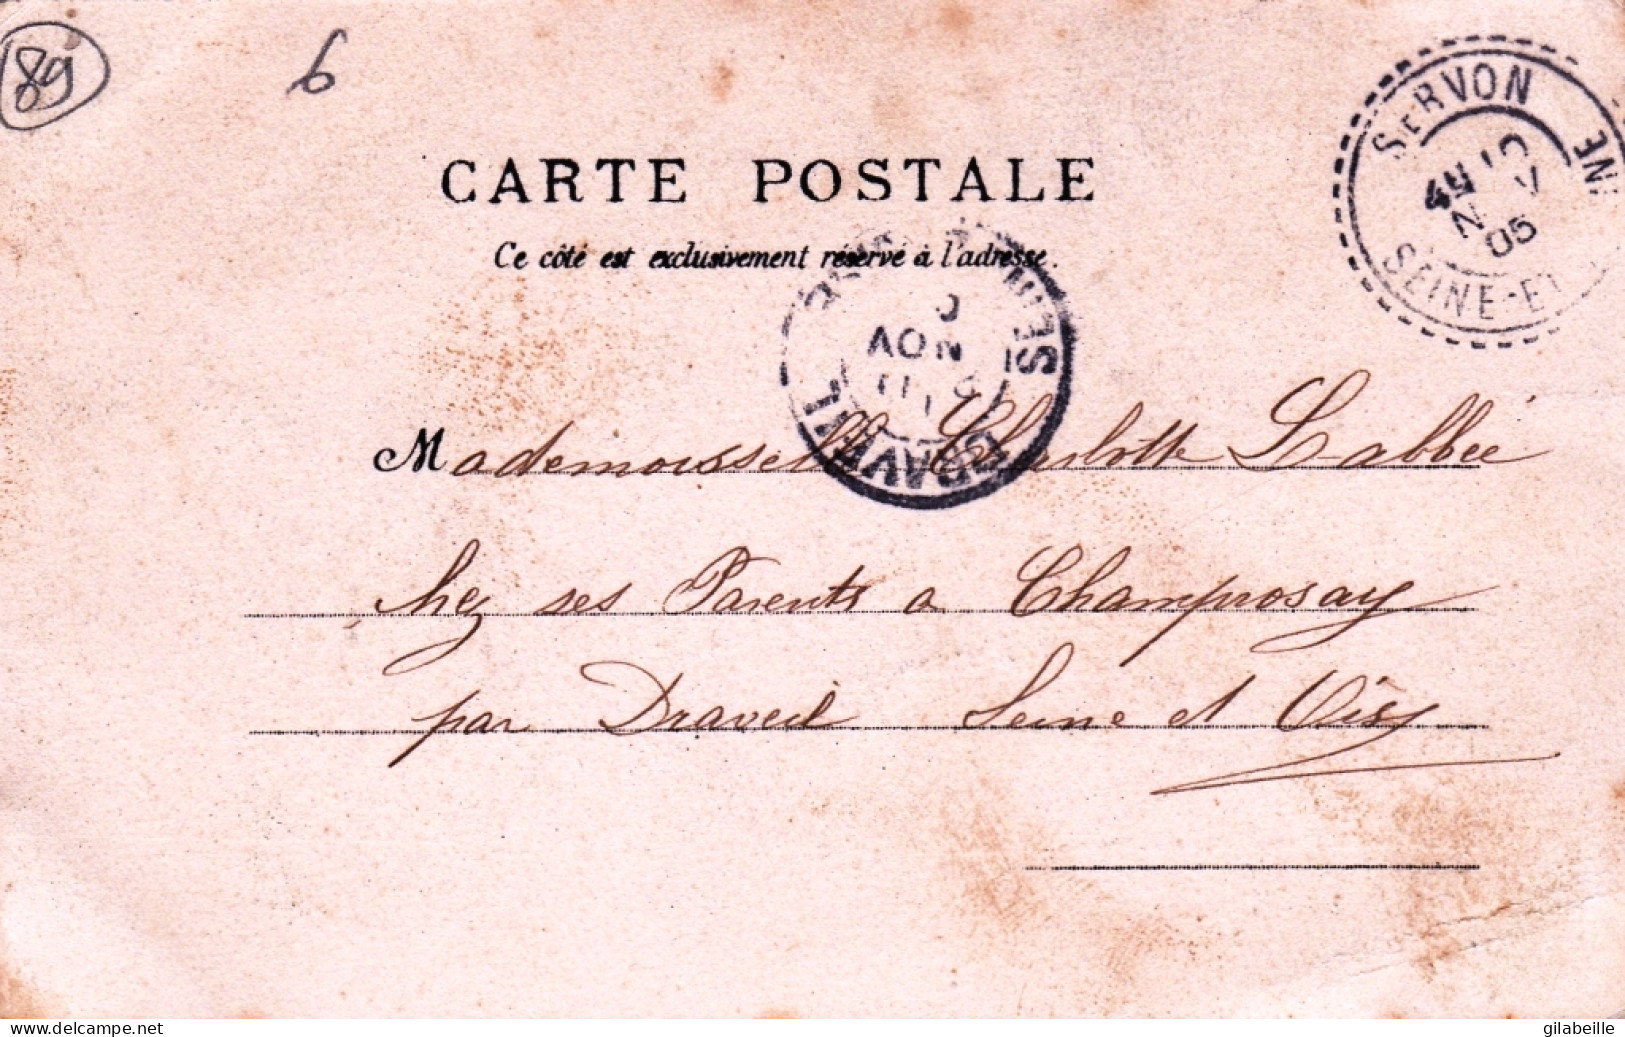 89
6
SERVON
SEINE-ET-
10
NOV
05
CARTE POSTALE
Ce côté est exclusivement réservé à l'adresse.
DRAVEIL
SEINE
NOV
Mademoisselle Charlotte Labbée
chez ses Parents a Champrosay
par Draveil Seine et Oise
www.delcampe.net
gilabeille